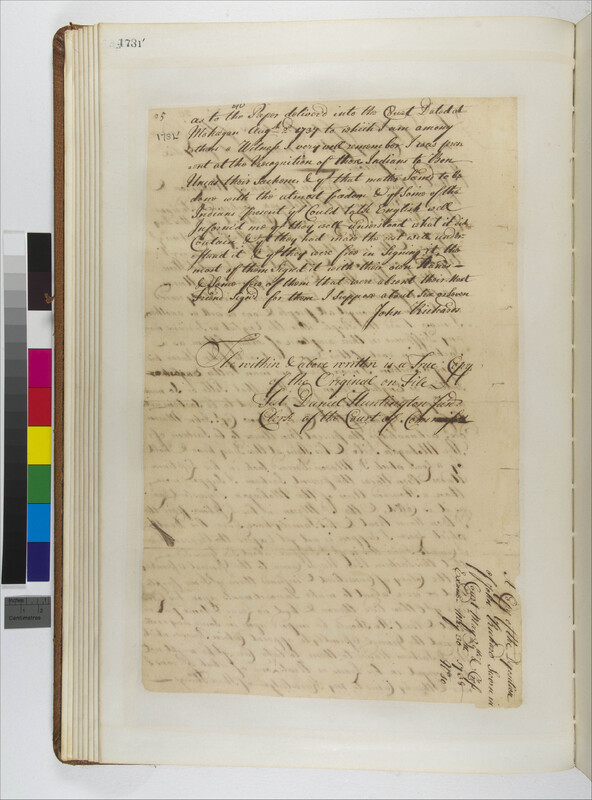 1731'
25
173b'
as to the Paper deliverd into the Court Dated at
Mohegan Augt. 2d 1737 to which I am among
others a Witness I very well remember I was pres
ent at the Recognition of those Indians to Ben
Uncas their Sachem & yt that matter Seemd to be
done with the utmost freedom & yt Some of the
Indians present yt Could talk English well
Informd me yt they well understood what it did
Contain & yt they had made the rest well under
stand it & yt they were free in Signing it, the
most of them Signd it with their own Hands
& Some few of them that were absent their Next
Friend Signd for them I Suppose about Six or Seven
John Richards
The within & above written is a True Copy
of the Original on File
Test Daniel Huntington Junr
Clerk of the Court of
A Copy of the Deposition
of John Richards Sworn in
Court May 29th &
Exd May 30 1738
No 10